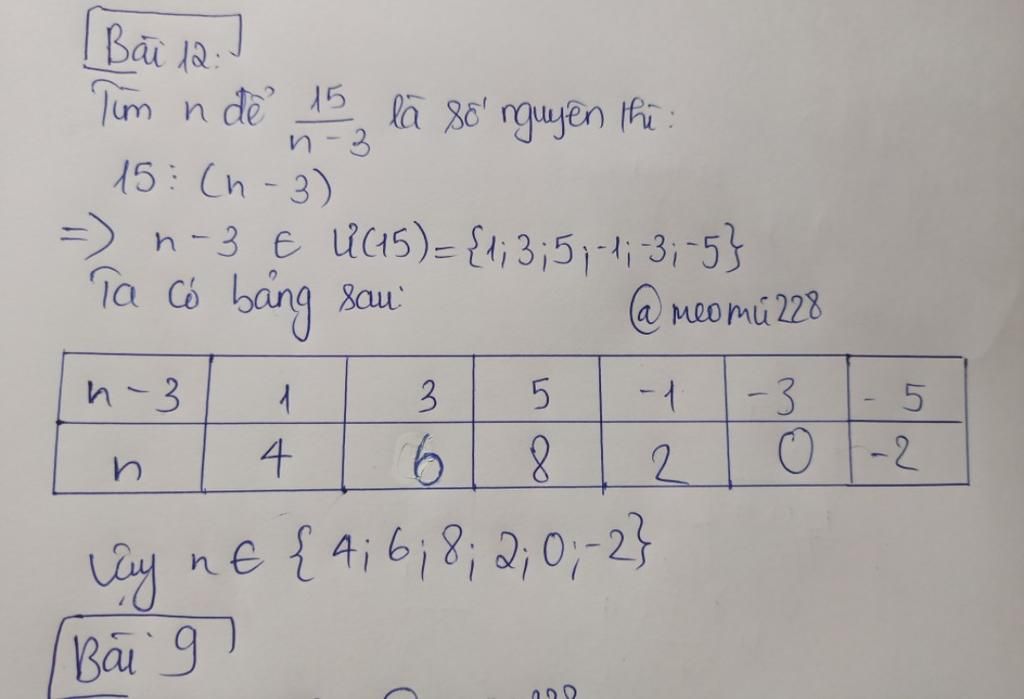 Bài 12:
Tìm n để 15/(n - 3) là số nguyên thì:
15 ⋮ (n - 3)
=> n - 3 ∈ Ư(15) = {1; 3; 5; -1; -3; -5}
Ta có bảng sau:
@meomú228
n - 3 1 3 5 -1 -3 - 5
n 4 6 8 2 0 -2
Vậy n ∈ {4; 6; 8; 2; 0; -2}
Bài 9
228